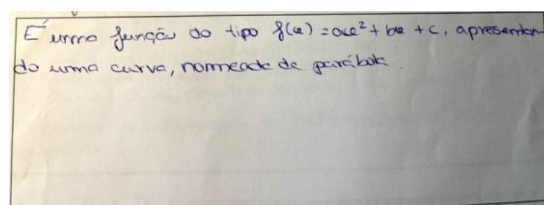 É uma função do tipo f(x) = ax² + bx + c, apresentan-
do uma curva, nomeada de parábola.